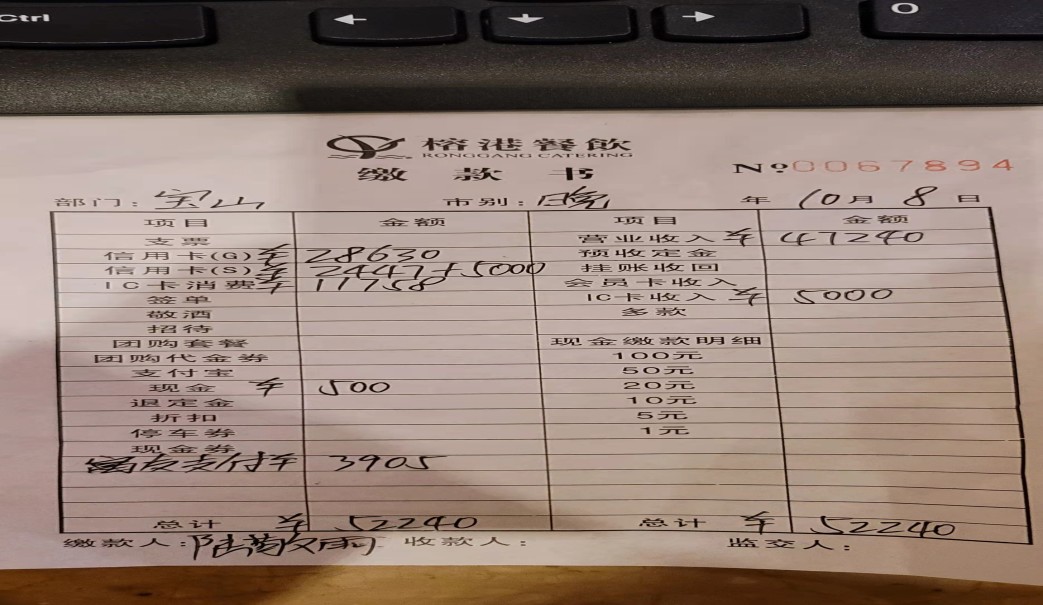 Ctrl
← ↓ → 0
榕港餐飲
RONGGANG CATERING
缴款书
№ 0067894
部门：宝山 市别：晚 年 10月 8日
项目 金额 项目 金额
支票 营业收入 ¥ 47240
信用卡(G) ¥ 28630 预收定金
信用卡(S) ¥ 2447+5000 挂账收回
IC卡消费 ¥ 11758 会员卡收入
签单 IC卡收入 ¥ 5000
敬酒 多款
招待
团购套餐 现金缴款明细
团购代金券 100元
支付宝 50元
现金 ¥ 500 20元
退定金 10元
折扣 5元
停车券 1元
现金券
友支付 ¥ 3905
总计 ¥ 52240 总计 ¥ 52240
缴款人：陆 雨 收款人： 监交人：